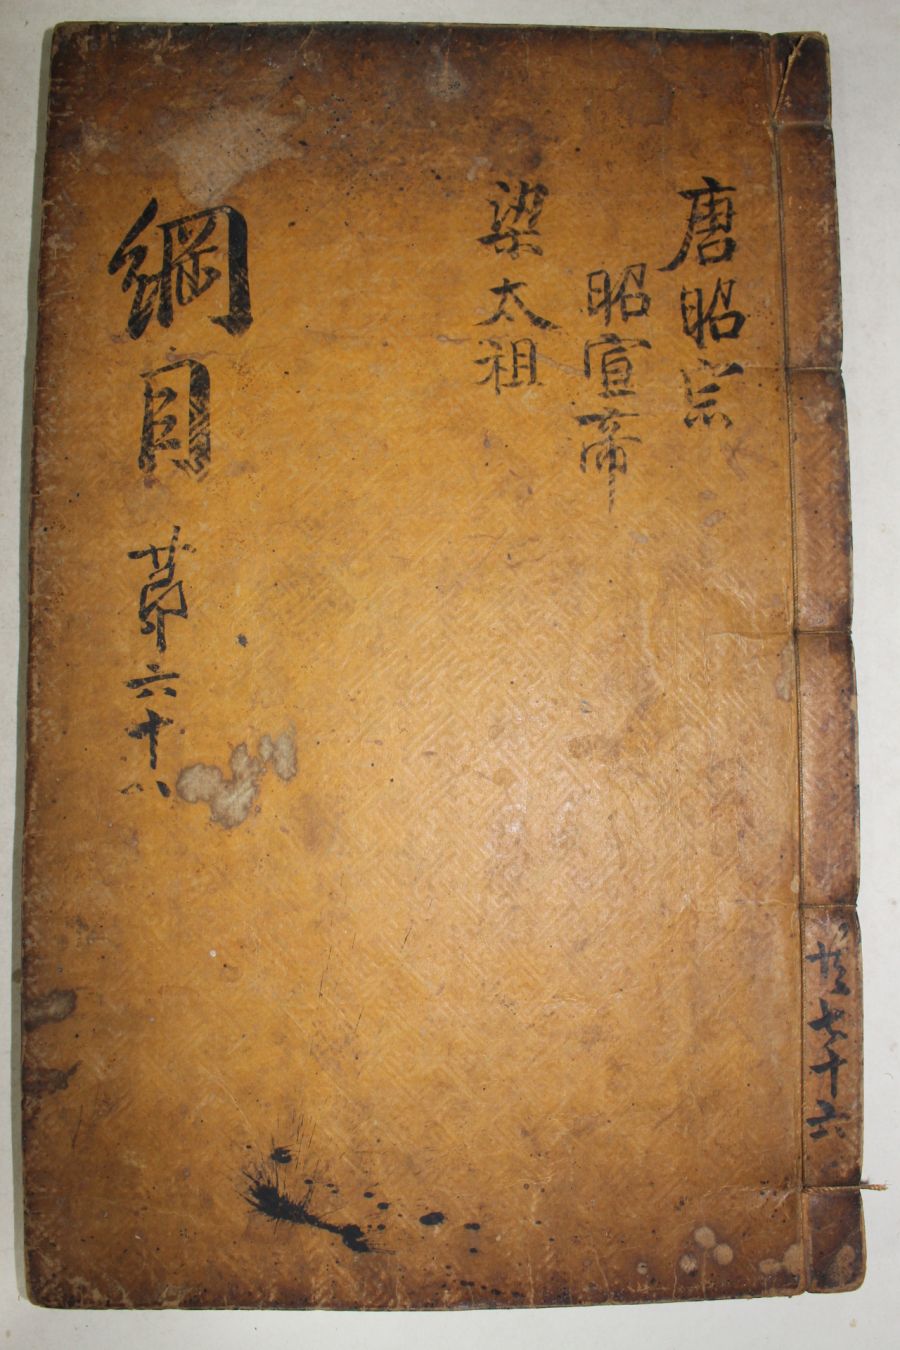 唐昭宗
昭宣帝
梁太祖
綱目 第六十八
共七十六